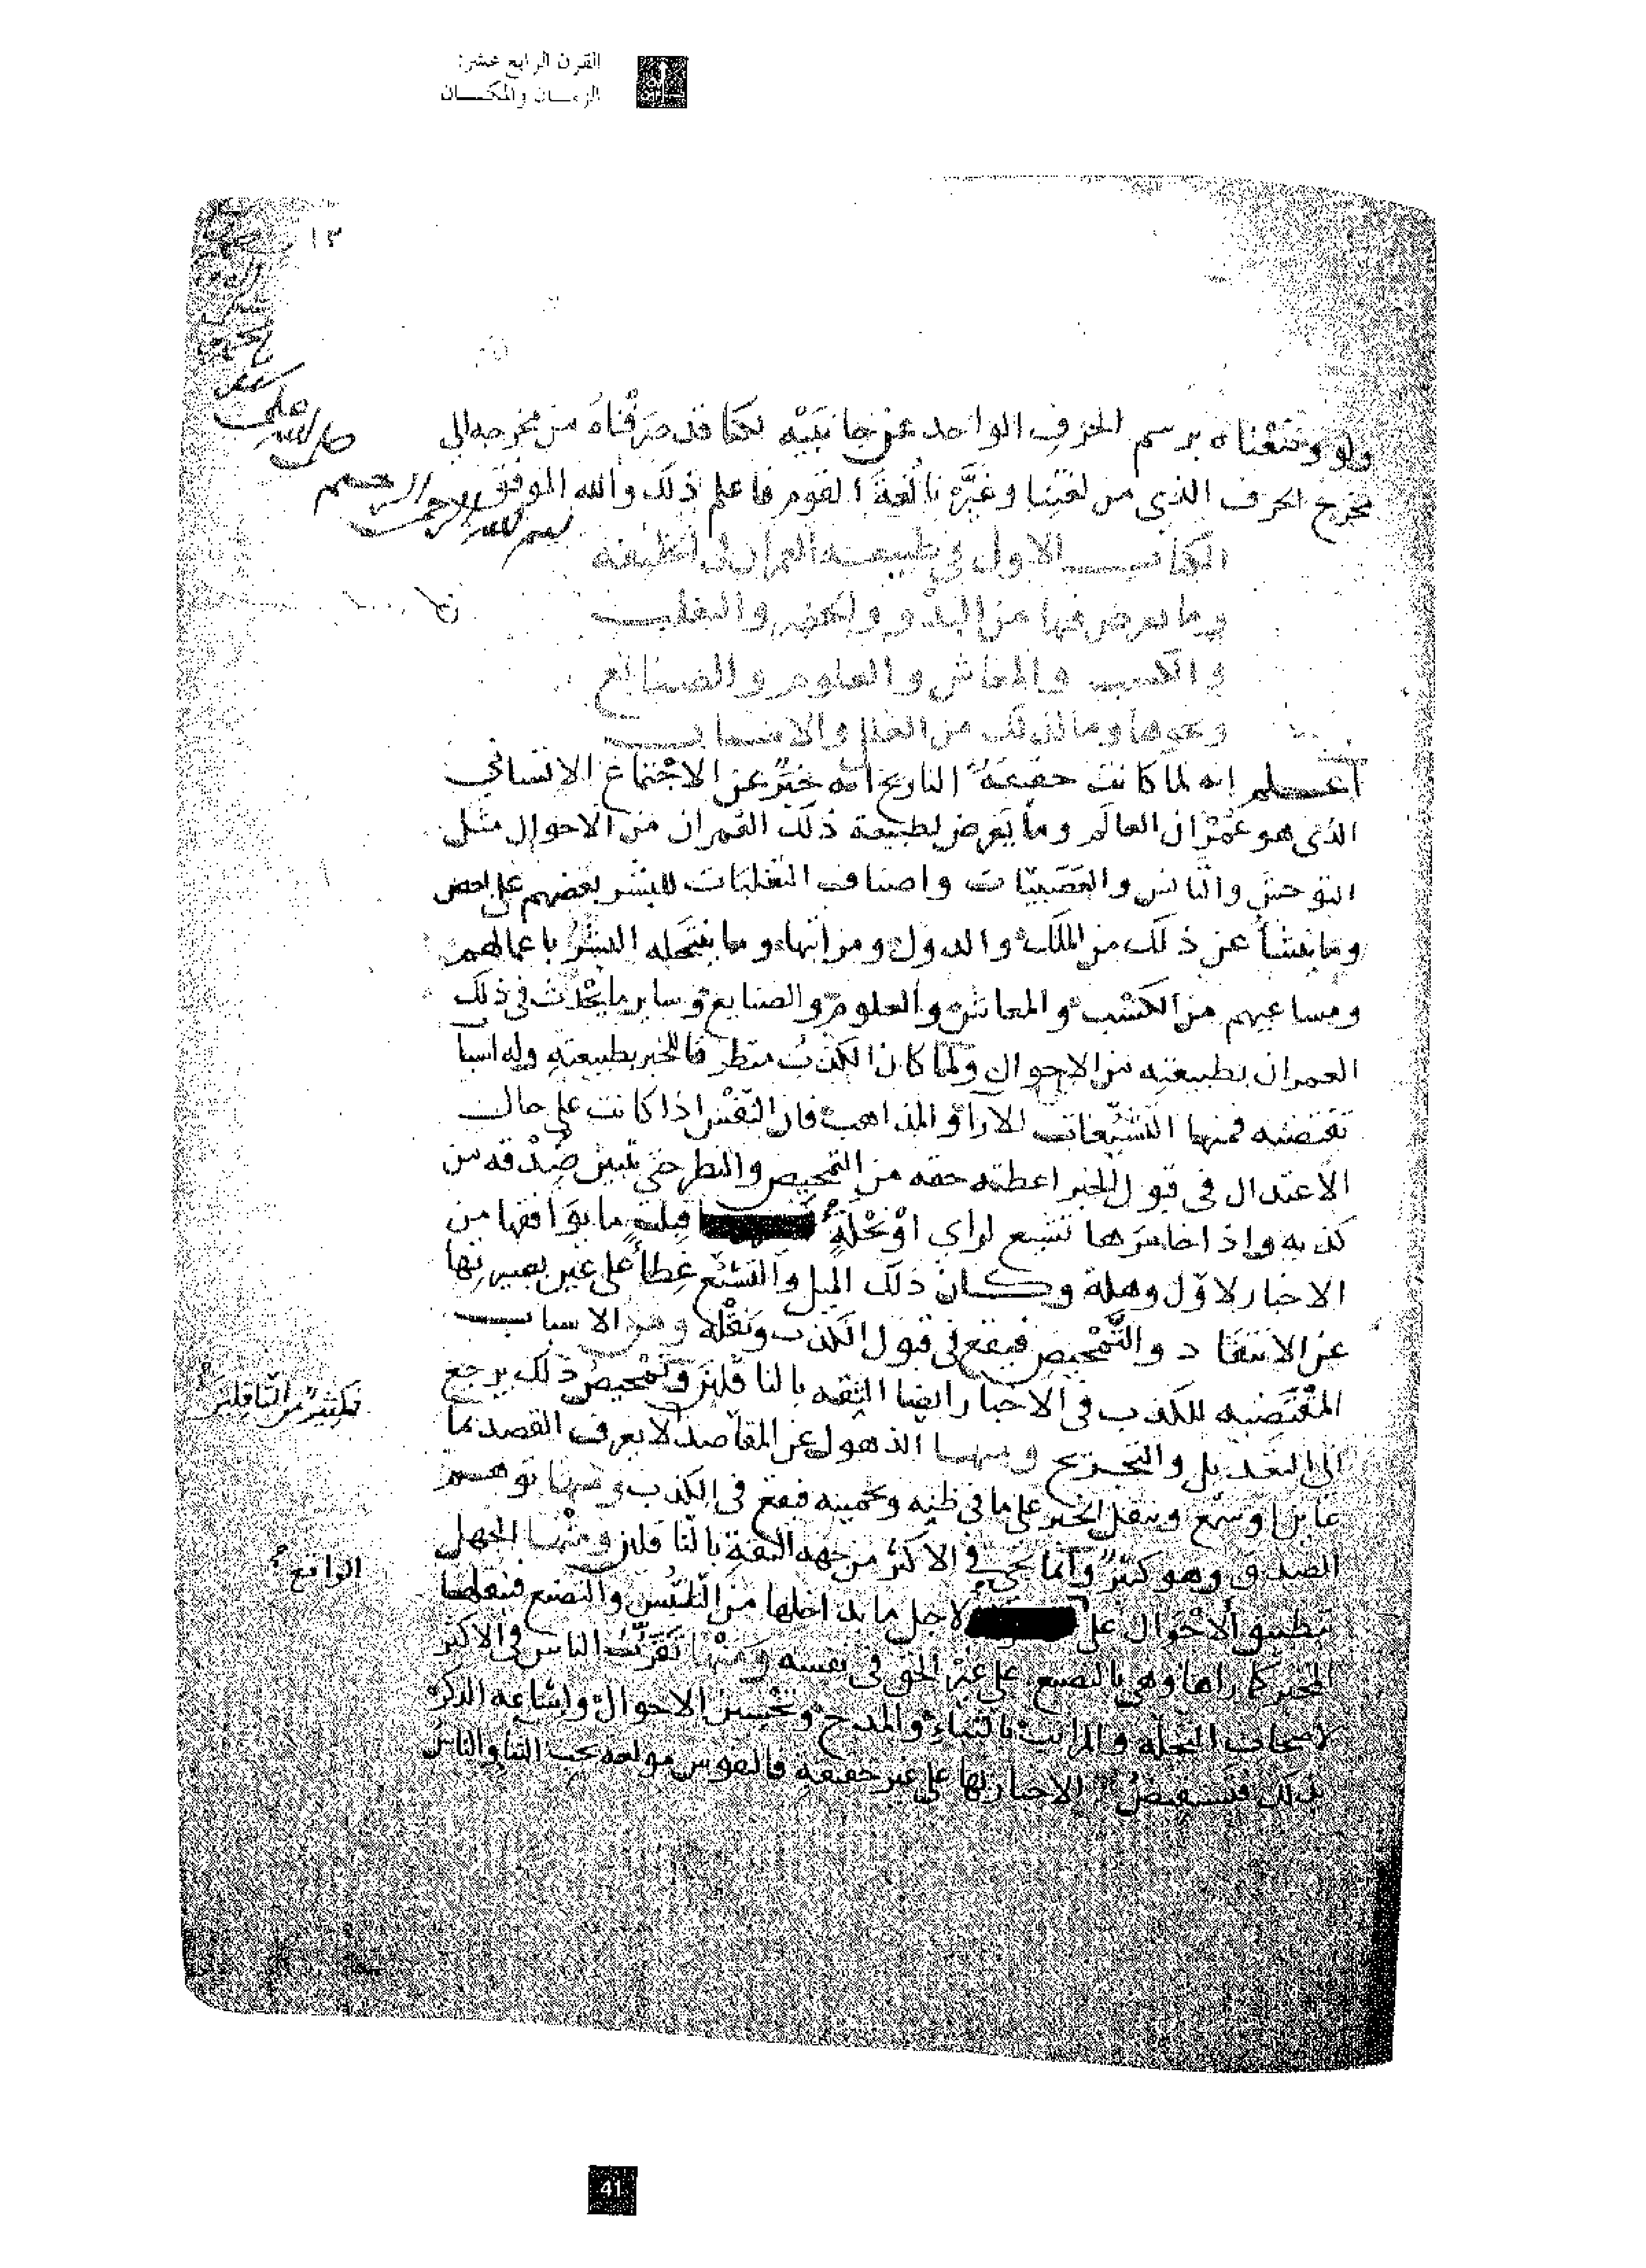 القرن الرابع عشر:
الزمان والمكان
١٣
ولو وضعناه برسم الحرف الواحد عن جانبيه لكنا قد صرفناه من مخرجه الى
مخرج الحرف الذي من لغتنا وغيرنا لغة القوم فاعلم ذلك والله الموفق
بسم الله الرحمن الرحيم
الكتاب الاول في طبيعة العمران في الخليقة
وما يعرض فيها من البدو والحضر والتغلب
والكسب والمعاش والعلوم والصنايع
ونحوها وما لذلك من العلل والاسباب
اعلم انه لما كانت حقيقة التاريخ انه خبر عن الاجتماع الانساني
الذي هو عمران العالم وما يعرض لطبيعة ذلك العمران من الاحوال مثل
التوحش والتانس والعصبيات واصناف التغلبات للبشر بعضهم على بعض
وما ينشأ عن ذلك من الملك والدول ومراتبها وما ينتحله البشر باعمالهم
ومساعيهم من الكسب والمعاش والعلوم والصنايع وساير ما يحدث في ذلك
العمران بطبيعته من الاحوال ولما كان الكذب متطرقا للخبر بطبيعته وله اسبا
تقتضيه فمنها التشيعات للارا والمذاهب فان النفس اذا كانت على حال
الاعتدال في قبول الخبر اعطته حقه من التمحيص والنظر حتى تبين صدقه من
كذبه واذا خامرها تشيع لراي او نحلة قبلت ما يوافقها من
الاخبار لاول وهلة وكان ذلك الميل والتشيع غطأ على عين بصيرتها
عن الانتقاد والتمحيص فيقع في قبول الكذب ونقله ومن الاسباب
المقتضيه للكذب في الاخبار ايضا الثقه بالناقلين وتمحيص ذلك يرجع
الى التعديل والتجريح ومنها الذهول عن المقاصد لا يعرف القصد بما
فكثير من الناقلين
عاين او سمع وينقل الخبر على ما في ظنه وتخمينه فيقع في الكذب ومنها توهم
الصدق وهو كثير وانما يجي في الاكثر من جهة الثقة بالناقلين ومنها الجهل
بتطبيق الاحوال على لاجل ما يداخلها من التلبيس والتصنع فينقلها
الواقع
المخبر كما راها وهي بالتصنع على غير الحق في نفسه ومنها تقرب الناس في الاكثر
لاصحاب التجلة والمراتب بالثناء والمدح وتحسين الاحوال واشاعة الذكر
بذلك فتستفيض الاخبار بها على غير حقيقة فالنفوس مولعه بحب الثنا والناس
41